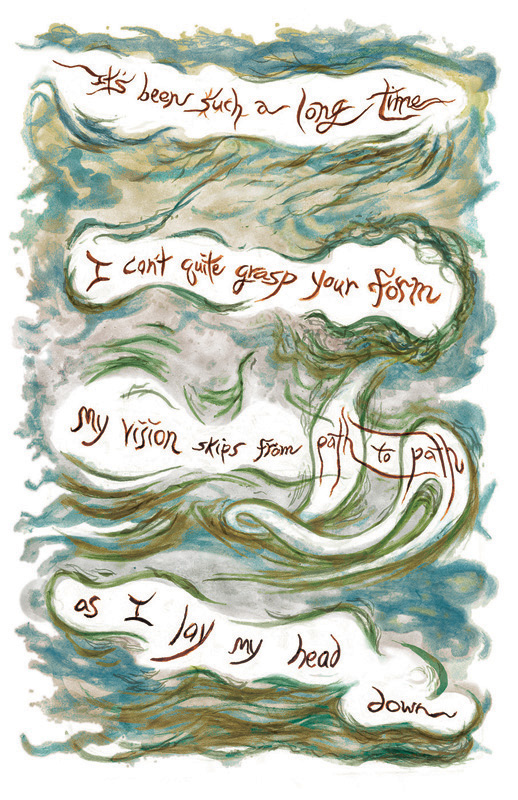 It's been such a long time
I cant quite grasp your form
My vision skips from path to path
as I lay my head
down